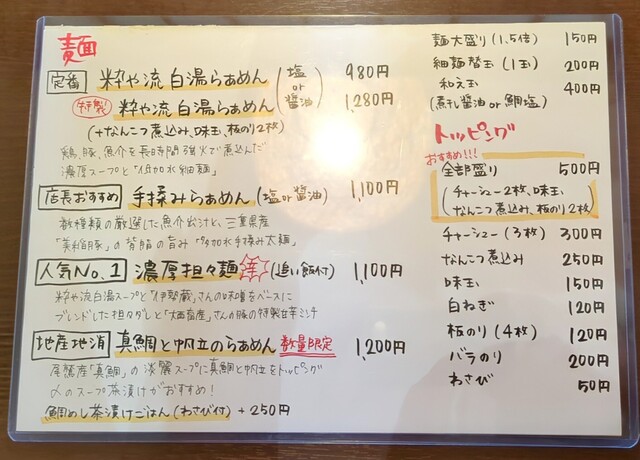 麺
定番 粋や流 白湯らぁめん (塩 or 醤油) 980円
特製! 粋や流 白湯らぁめん 1,280円
(+なんこつ煮込み、味玉、板のり2枚)
鶏、豚、魚介を長時間強火で煮込んだ
濃厚スープと「低加水細麺」
店長おすすめ 手揉みらぁめん (塩 or 醤油) 1,100円
数種類の厳選した魚介出汁と、三重県産
「美稲豚」の背脂の旨み「多加水手揉み太麺」
人気No.1 濃厚担々麺 (追い飯付) 1,100円
粋や流白湯スープと「伊勢蔵」さんの味噌をベースに
ブレンドした担々ダレと「大西畜産」さんの豚の特製甘辛ミンチ
地産地消 真鯛と帆立のらぁめん 数量限定 1,200円
尾鷲産「真鯛」の淡麗スープに真鯛と帆立をトッピング
〆のスープ茶漬けがおすすめ!
鯛めし茶漬けごはん(わさび付) + 250円
麺大盛り (1.5倍) 150円
細麺替玉 (1玉) 200円
和え玉 400円
(煮干し醤油 or 鯛塩)
トッピング
おすすめ!!!
全部盛り 500円
(チャーシュー2枚、味玉
なんこつ煮込み、板のり2枚)
チャーシュー (3枚) 300円
なんこつ煮込み 250円
味玉 150円
白ねぎ 120円
板のり (4枚) 120円
バラのり 200円
わさび 50円